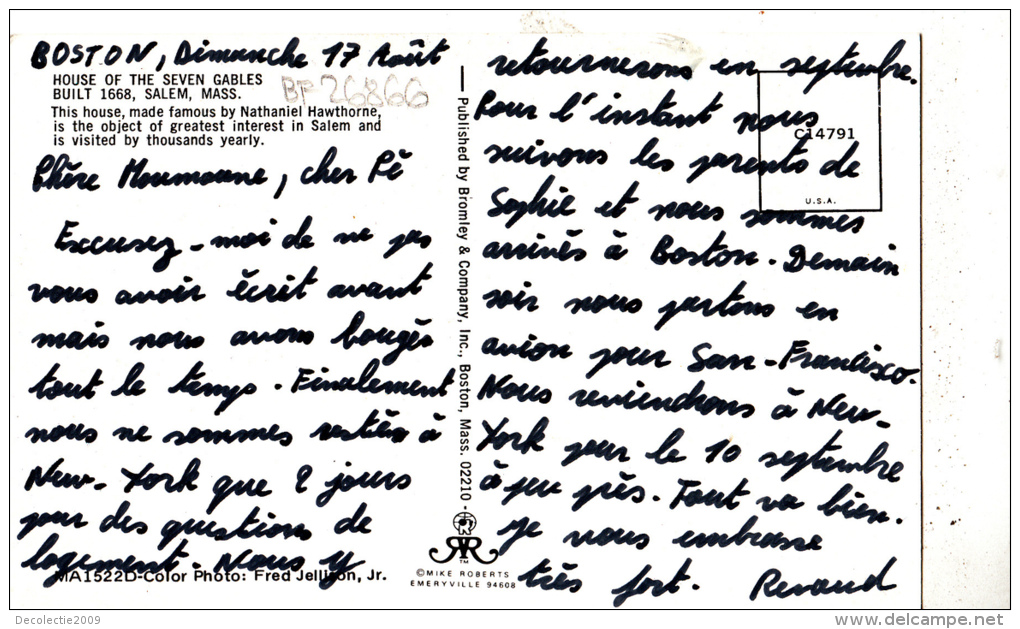 BOSTON, Dimanche 17 Août
HOUSE OF THE SEVEN GABLES
BUILT 1668, SALEM, MASS.
BF 26866
This house, made famous by Nathaniel Hawthorne,
is the object of greatest interest in Salem and
is visited by thousands yearly.
Chère Moumoune, cher Pé
Excusez-moi de ne pas
vous avoir écrit avant
mais nous avons bougés
tout le temps. Finalement
nous ne sommes restés à
New-York que 2 jours
pour des questions de
logement. Nous y
MA1522D-Color Photo: Fred Jellison, Jr.
Published by Bromley & Company, Inc., Boston, Mass. 02210
TM
©MIKE ROBERTS
EMERYVILLE 94608
retournerons en septembre.
Pour l'instant nous
C14791
suivons les parents de
Sophie et nous sommes
U.S.A.
arrivés à Boston. Demain
soir nous partons en
avion pour San-Francisco.
Nous reviendrons à New-
York pour le 10 septembre
à peu près. Tout va bien.
Je vous embrasse
très fort. Renaud
Decolectie2009
www.delcampe.net